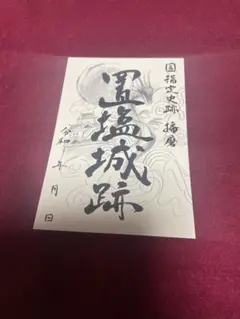 国指定史跡 播磨
置塩城跡
令和 年 月 日